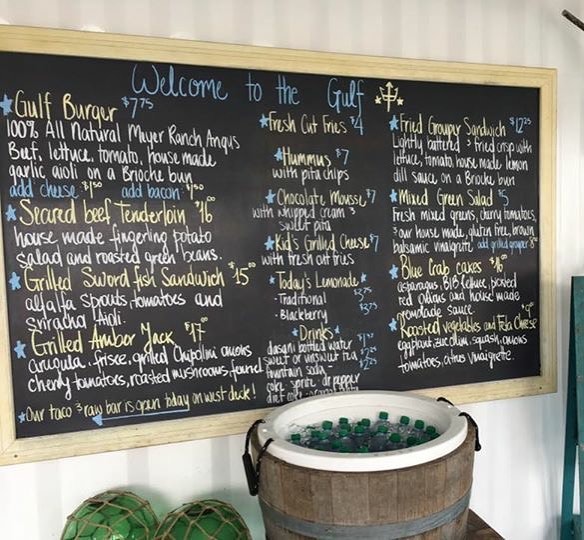 Welcome to the Gulf
Gulf Burger $7.75
100% All Natural Meyer Ranch Angus
Beef, lettuce, tomato, house made
garlic aioli on a Brioche bun
add cheese $1.50 add bacon $1.50
Seared beef Tenderloin $16
house made fingerling potato
salad and roasted green beans.
Grilled Sword fish Sandwich $15
alfalfa spouts, tomatoes and
sriracha Aioli
Grilled Amber Jack $17
arugula, frisce, grilled Chipolini onions
cherry tomatoes, roasted mushrooms, fennel
Our taco & raw bar is open today on west deck!
Fresh Cut Fries $4
Hummus $7
with pita chips
Chocolate Mousse $7
with whipped cream &
sweet pita
Kid's Grilled Cheese $7
with fresh cut fries
Today's Lemonade
-Traditional $3.75
-Blackberry $3.75
Drinks
dasani bottled water
sweet or unsweet tea
fountain soda
coke sprite dr pepper
diet coke
Fried Grouper Sandwich $12.25
Lightly battered & fried crisp with
lettuce, tomato, house made lemon
dill sauce on a Brioche bun
Mixed Green Salad $5
Fresh mixed greens, cherry tomatoes,
& our house made, gluten free, brown
balsamic vinaigrette add grilled grouper
Blue Crab cakes $16
asparagus, BIB lettuce, pickled
red onions and house made
remoulade sauce
Roasted vegetables and Feta Cheese $9
eggplant, zucchini, squash, onions
tomatoes, citrus vinaigrette.